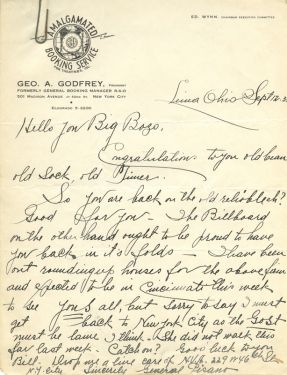 AMALGAMATED
BOOKING SERVICE
ED. WYNN CHAIRMAN EXECUTIVE COMMITTEE
GEO. A. GODFREY, PRESIDENT
FORMERLY GENERAL BOOKING MANAGER R-K-O
501 MADISON AVENUE NEW YORK CITY
ELDORADO 5-
Lima Ohio Sept
Hello Jon Big Bozo,
Congratulation. to you old bean
old Sock, old Timer.
So you are back on the old reliable?
Good for you — The Billboard
on the other hand ought to be proud to have
you back in it's folds — I have been
out rounding up houses for the above firm
and expected to be in Cincinnati this week
to see you all, but sorry to say I must
get back to New York City as the Gov't
must be lame I think. She did not walk this
far last week. Catch on? Good luck to you
Bill. Drop me a line care of N.V.A. 229 W 46
N.Y. City Sincerely General Pisano